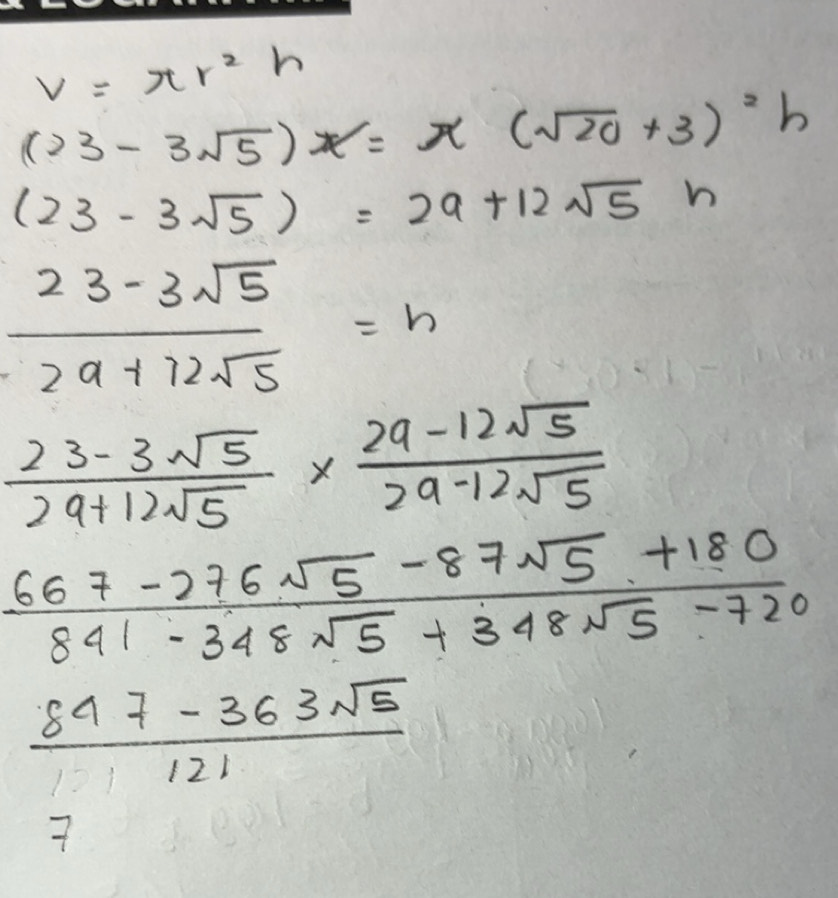 V = πr² h
(23 - 3√5)π = π (√20 + 3)² h
(23 - 3√5) = 29 + 12√5 h
23 - 3√5
———— = h
29 + 12√5
23 - 3√5 / 29 + 12√5 × 29 - 12√5 / 29 - 12√5
667 - 276√5 - 87√5 + 180
841 - 348√5 + 348√5 - 720
847 - 363√5
121
7